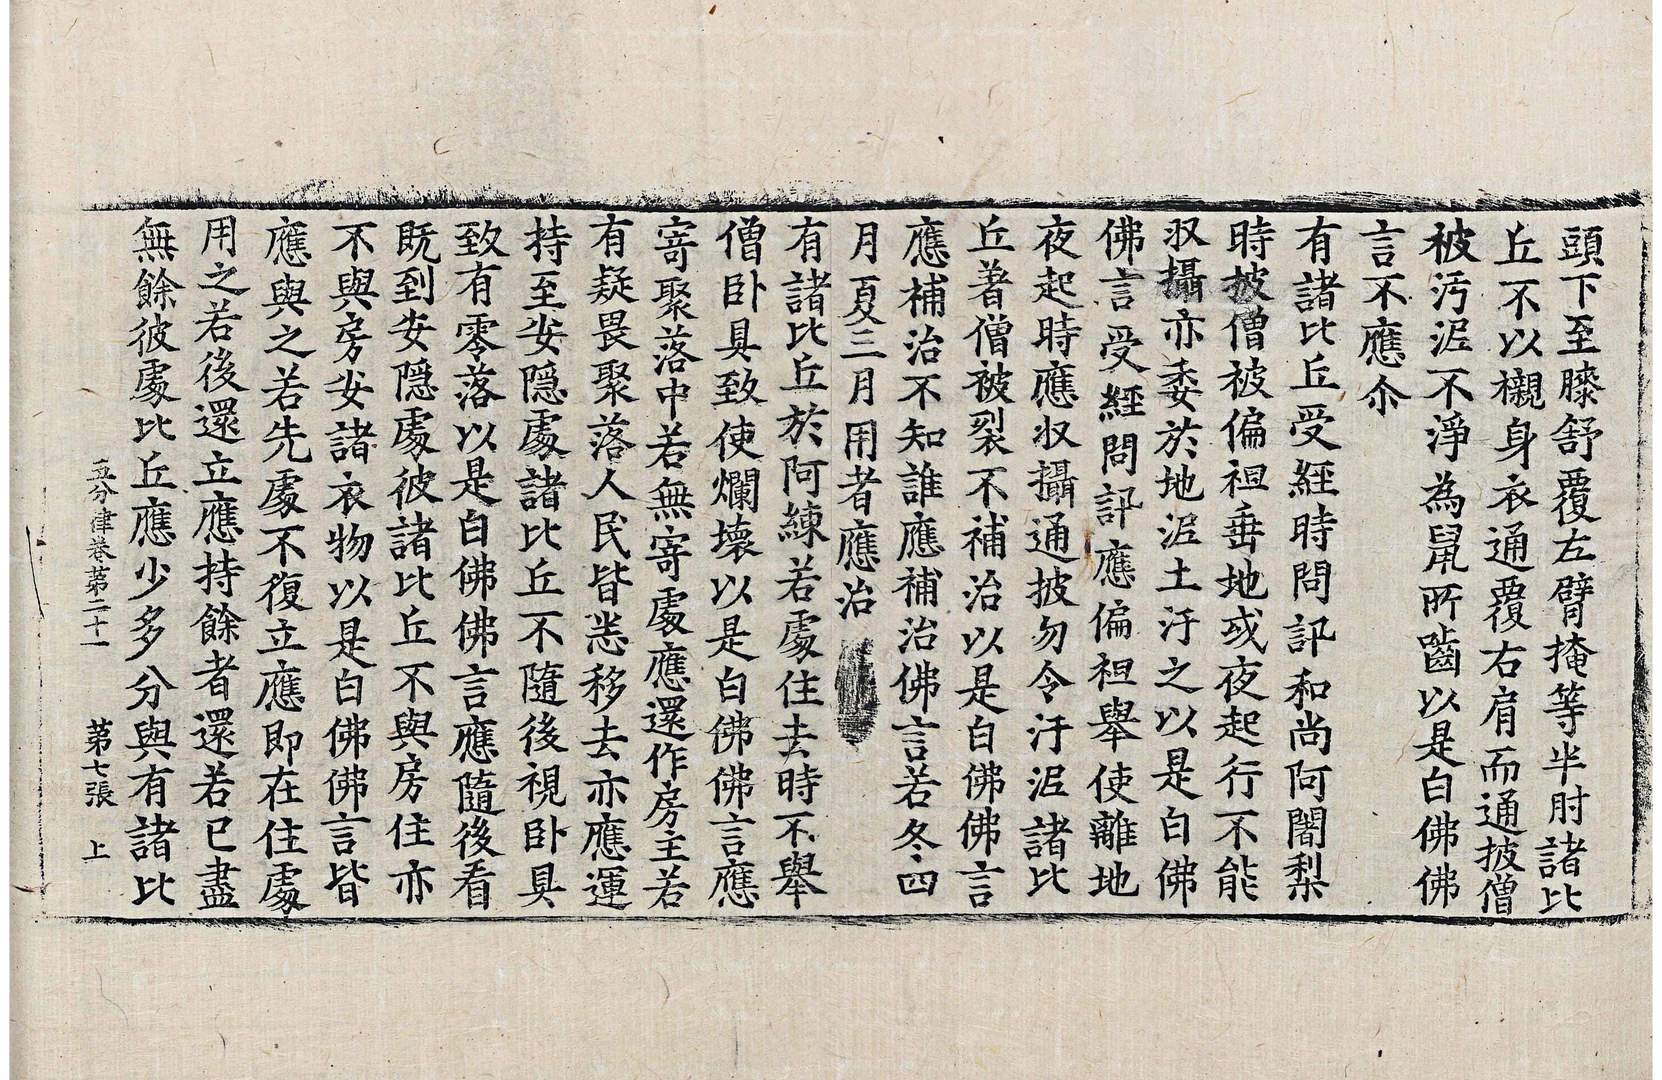 頭下至膝舒覆左臂掩等半肘諸比
丘不以襯身衣通覆右肩而通披僧
被汚泥不淨為鼠所齧以是白佛佛
言不應尒
有諸比丘受經時問訊和尚阿闍梨
時披僧被偏袒垂地或夜起行不能
収攝亦委於地泥土汙之以是白佛
佛言受經問訊應偏袒舉使離地
夜起時應収攝通披勿令汙泥諸比
丘著僧被裂不補治以是白佛佛言
應補治不知誰應補治佛言若冬四
月夏三月用者應治
有諸比丘於阿練若處住去時不舉
僧卧具致使爛壞以是白佛佛言應
寄聚落中若無寄處應還作房主若
有疑畏聚落人民皆悉移去亦應運
持至安隱處諸比丘不隨後視卧具
致有零落以是白佛佛言應隨後看
既到安隱處彼諸比丘不與房住亦
不與房安諸衣物以是白佛佛言皆
應與之若先處不復立應即在住處
用之若後還立應持餘者還若已盡
無餘彼處比丘應少多分與有諸比
五分律卷第二十一 第七張 上